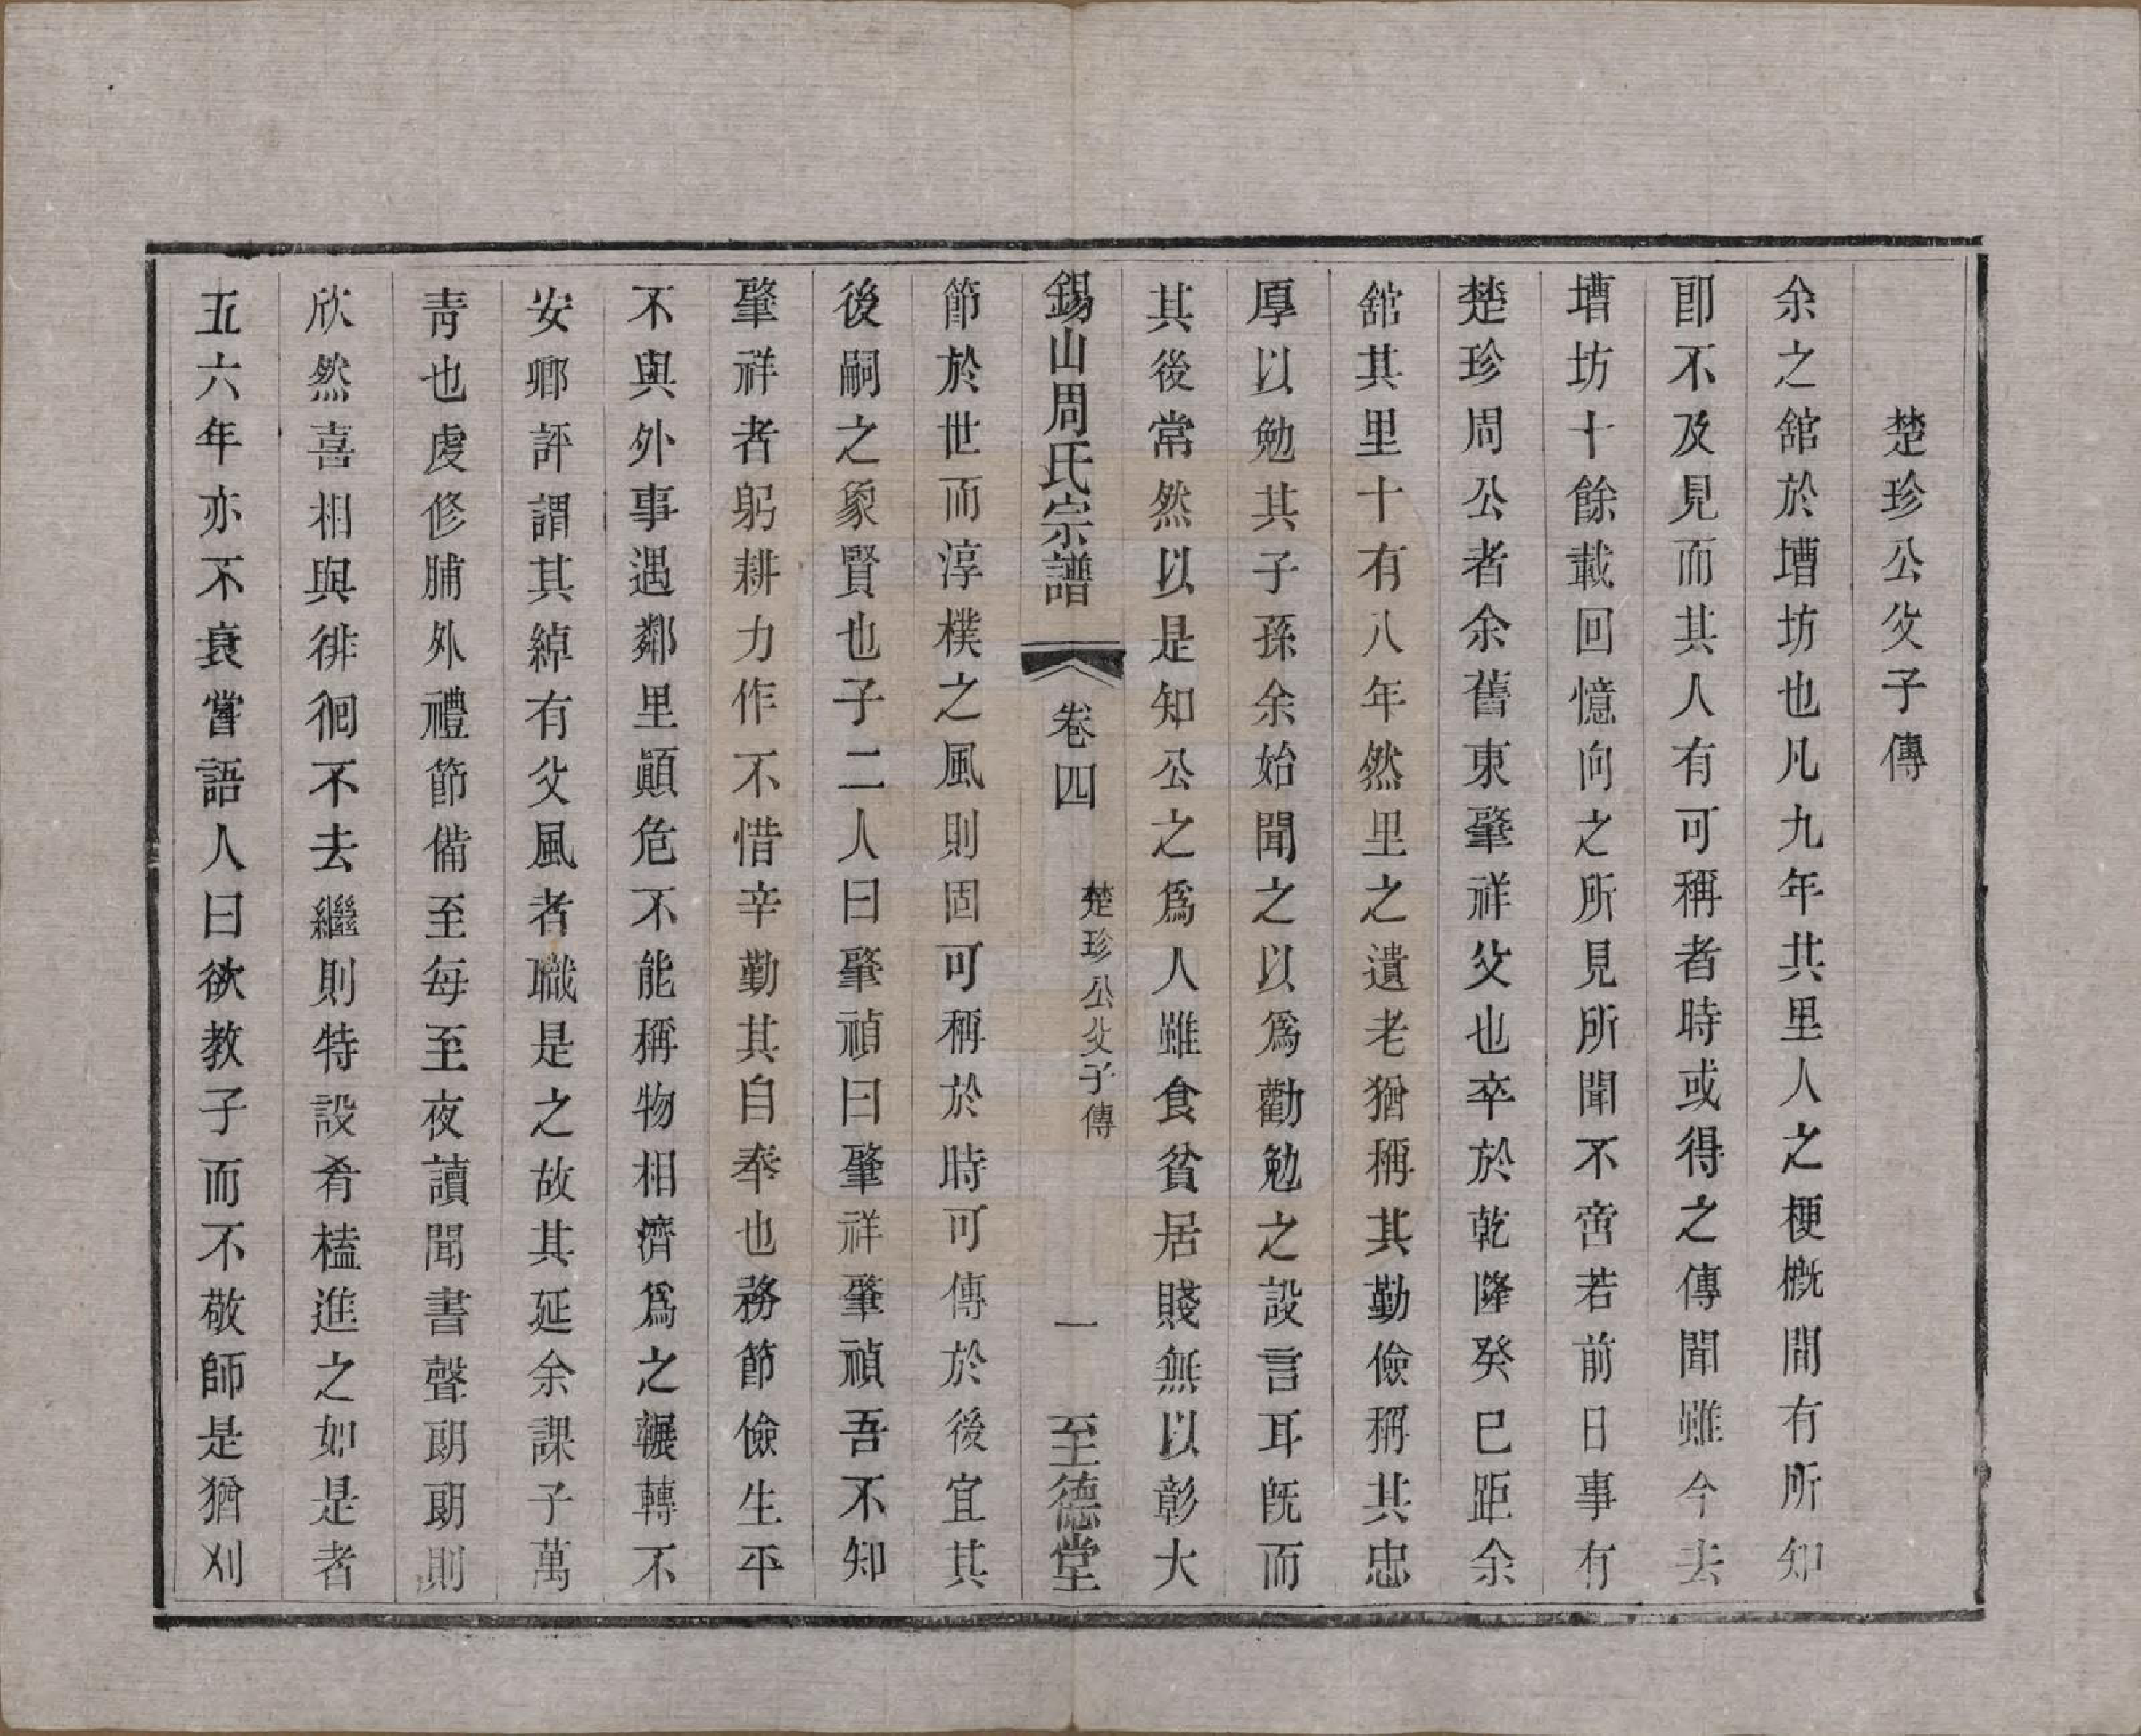 楚珍公父子傳
余之舘於壋坊也凡九年共里人之梗槪間有所知
卽不及見而其人有可稱者時或得之傳聞雖今去
坊十餘載回憶向之所見所聞不啻若前日事有
楚珍周公者余舊東肇祥父也卒於乾隆癸巳距余
舘其里十有八年然里之遺老猶稱其勤儉稱其忠
厚以勉其子孫余始聞之以爲勸勉之設言耳旣而
其後常然以是知公之爲人雖食貧居賤無以彰大
錫山周氏宗譜 卷四 楚珍公父子傳 一 至德堂
節於世而淳樸之風則固可稱於時可傳於後宜其
後嗣之象賢也子二人曰肇禎曰肇祥肇禎吾不知
肇祥者躬耕力作不惜辛勤其自奉也務節儉生平
不與外事遇鄰里顚危不能稱物相濟爲之輾轉不
安鄕評謂其綽有父風者職是之故其延余課子萬
靑也虔修脯外禮節備至每至夜讀聞書聲朗朗則
欣然喜相與徘徊不去繼則特設肴榼進之如是者
五六年亦不衰嘗語人曰欲教子而不敬師是猶刈